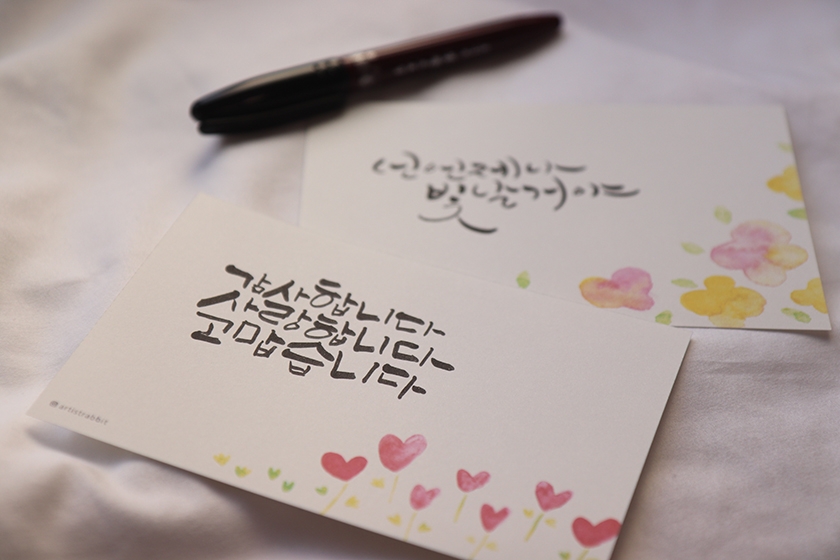 넌 언제나
빛날 거야
감사합니다
사랑합니다
고맙습니다
artistrabbit